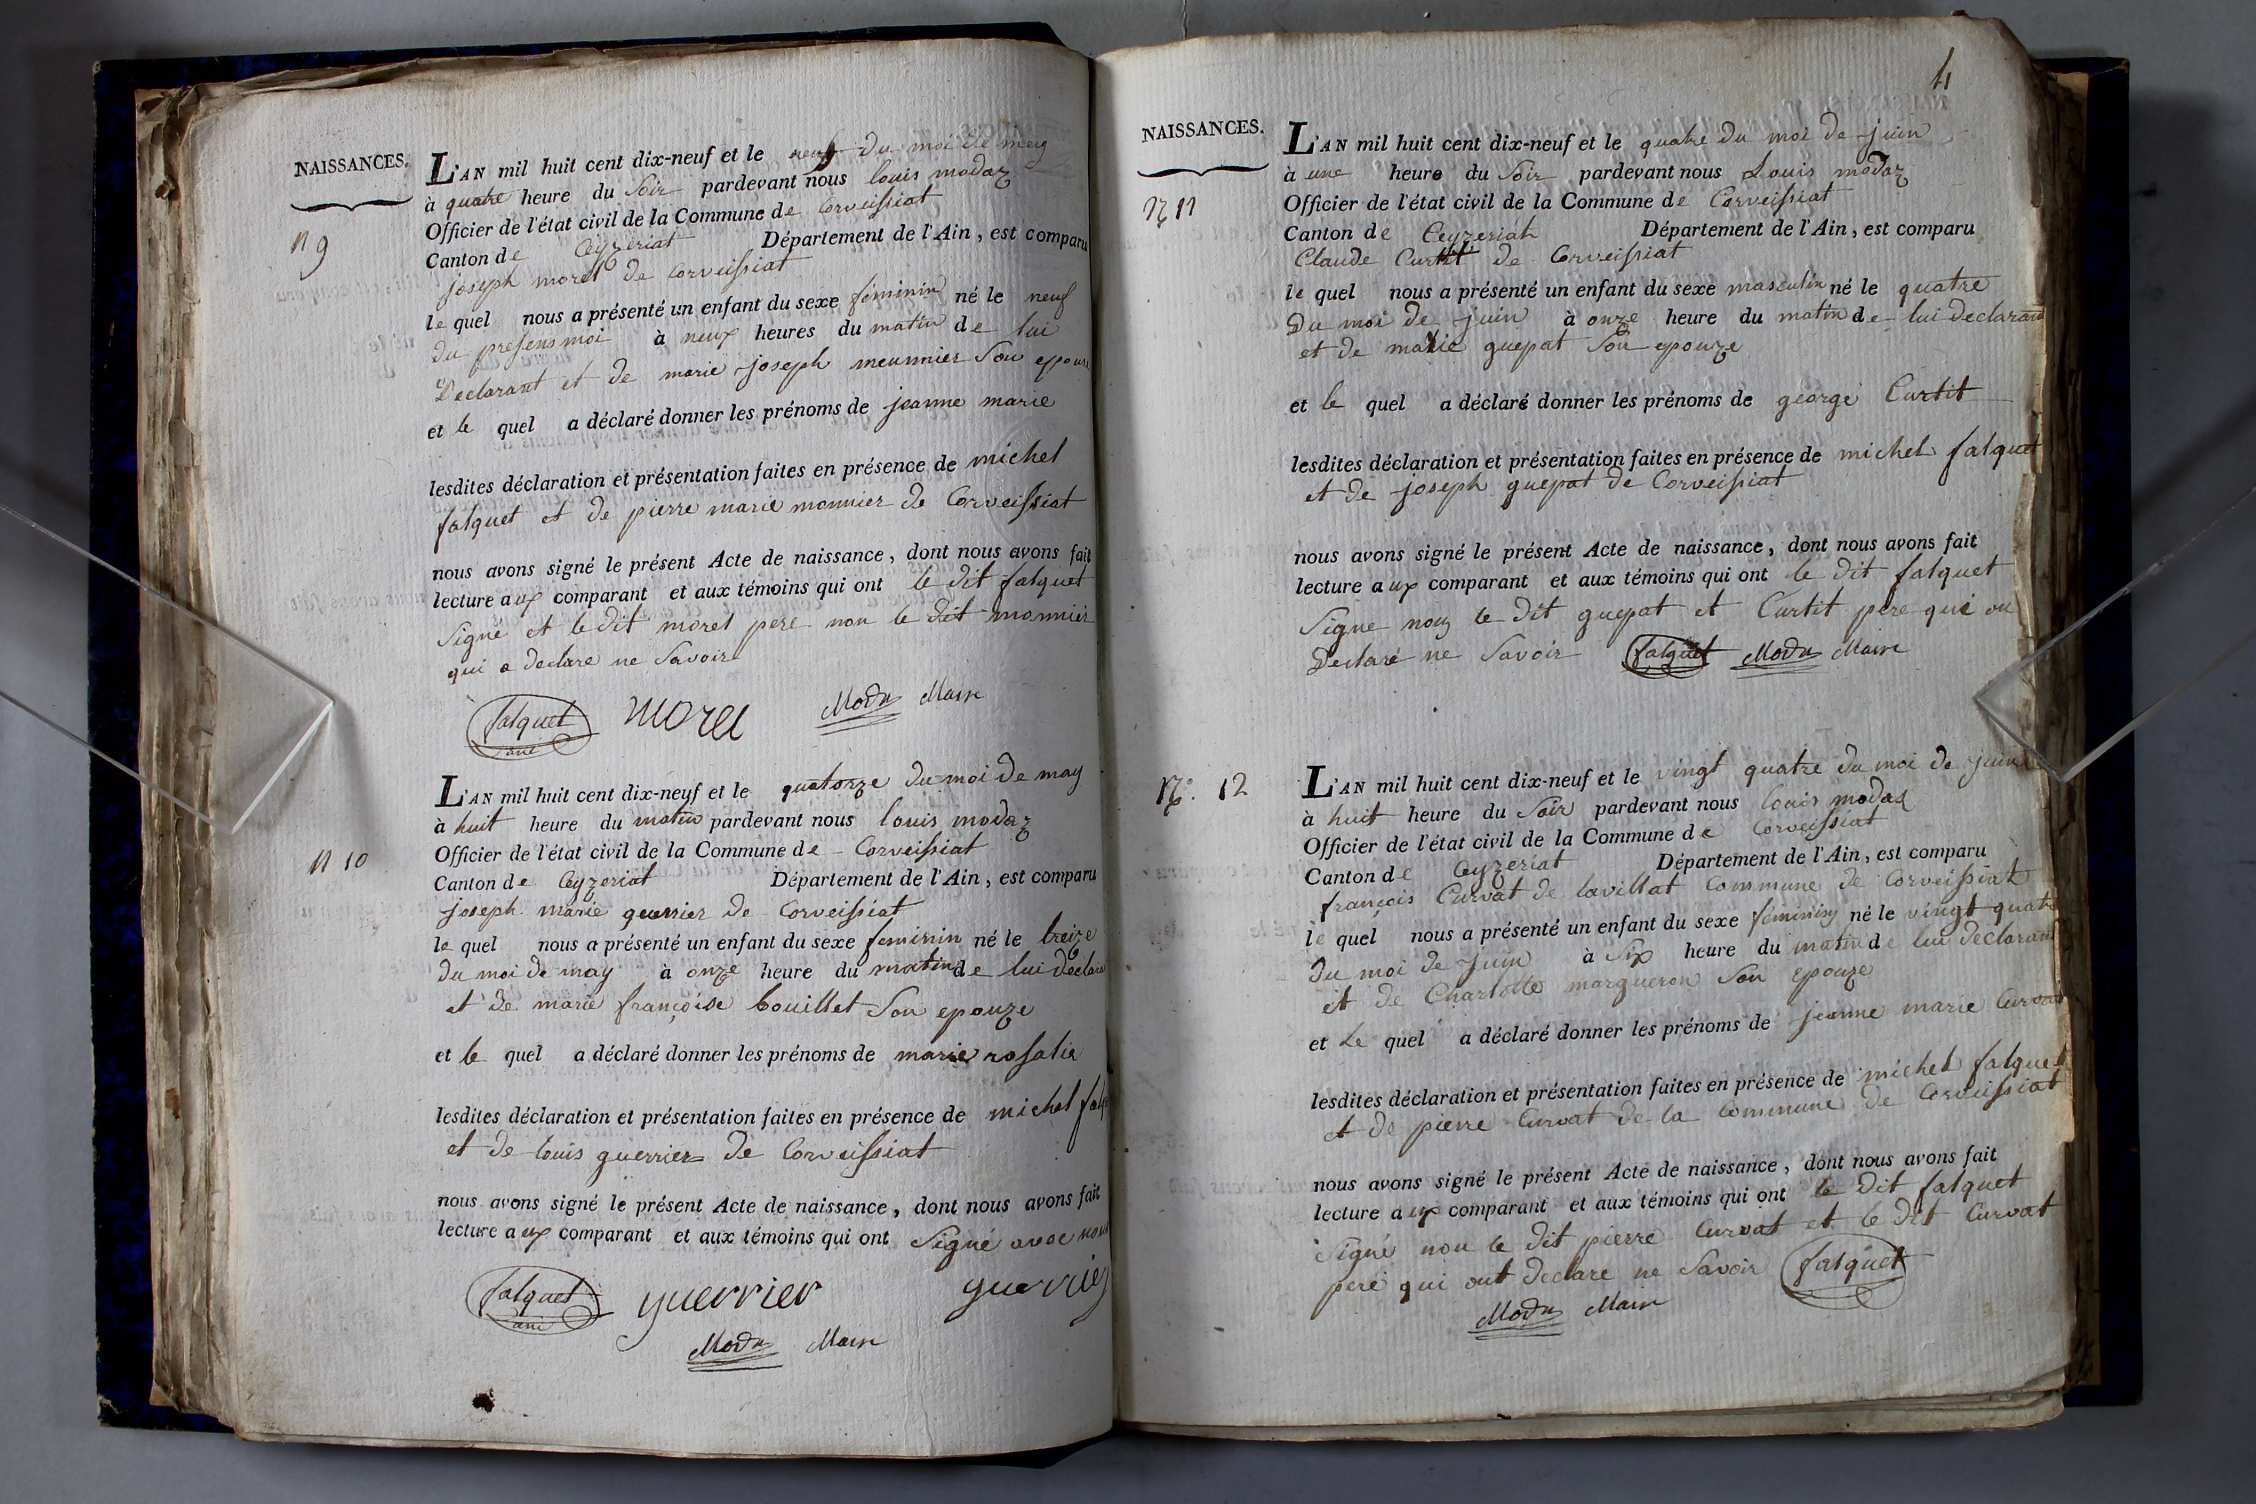 NAISSANCES.
n 9
L'AN mil huit cent dix-neuf et le neuf du moi de mey
à quatre heure du soir pardevant nous louis modaz
Officier de l'état civil de la Commune de Corveissiat
Canton de Ceyzeriat Département de l'Ain, est comparu
joseph morel de Corveissiat
le quel nous a présenté un enfant du sexe féminin né le neuf
du presens moi à neuf heures du matin de lui
Declarant et de marie joseph meunnier Son epouse
et le quel a déclaré donner les prénoms de jeanne marie
lesdites déclaration et présentation faites en présence de michel
falquet et de pierre marie monnier de Corveissiat
nous avons signé le présent Acte de naissance, dont nous avons fait
lecture aux comparant et aux témoins qui ont le dit falquet
Signé et le dit morel pere non le dit monnier
qui a declare ne Savoir
falquet morel Modas Maire
n 10
L'AN mil huit cent dix-neuf et le quatorze du moi de may
à huit heure du matin pardevant nous louis modaz
Officier de l'état civil de la Commune de Corveissiat
Canton de Ceyzeriat Département de l'Ain, est comparu
joseph marie guerrier de Corveissiat
le quel nous a présenté un enfant du sexe feminin né le treize
du moi de may à onze heure du matin de lui declara
et de marie françoise bouillet Son epouze
et le quel a déclaré donner les prénoms de marie rosalie
lesdites déclaration et présentation faites en présence de michel falq
et de louis guerrier de Corveissiat
nous avons signé le présent Acte de naissance, dont nous avons fait
lecture aux comparant et aux témoins qui ont Signé avec nous
falquet guerrier guerrier
Modas Maire
4
NAISSANCES.
N 11
L'AN mil huit cent dix-neuf et le quatre du moi de juin
à une heure du Soir pardevant nous Louis modaz
Officier de l'état civil de la Commune de Corveissiat
Canton de Ceyzeriat Département de l'Ain, est comparu
Claude Curtit de Corveissiat
le quel nous a présenté un enfant du sexe masculin né le quatre
Du moi de juin à onze heure du matin de lui declarant
et de marie guepat Son epouze
et le quel a déclaré donner les prénoms de george Curtit
lesdites déclaration et présentation faites en présence de michel falquet
et de joseph guepat de Corveissiat
nous avons signé le présent Acte de naissance, dont nous avons fait
lecture aux comparant et aux témoins qui ont le dit falquet
Signe non le dit guepat et Curtit pere qui on
Declaré ne Savoir falquet Modas Maire
No. 12
L'AN mil huit cent dix-neuf et le vingt quatre du moi de juin
à huit heure du Soir pardevant nous louis modas
Officier de l'état civil de la Commune de Corveissiat
Canton de Ceyzeriat Département de l'Ain, est comparu
françois Curvat de lavillat Commune de Corveissiat
le quel nous a présenté un enfant du sexe féminin né le vingt quatre
Du moi de juin à Six heure du matin de lui declarant
et de Charlotte margueron Son epouze
et Le quel a déclaré donner les prénoms de jeanne marie Curvat
lesdites déclaration et présentation faites en présence de michel falquet
et de pierre Curvat de la Commune de Corveissiat
nous avons signé le présent Acte de naissance, dont nous avons fait
lecture aux comparant et aux témoins qui ont le dit falquet
Signé non le dit pierre Curvat et le dit Curvat
pere qui ont declare ne Savoir falquet
Modas Maire